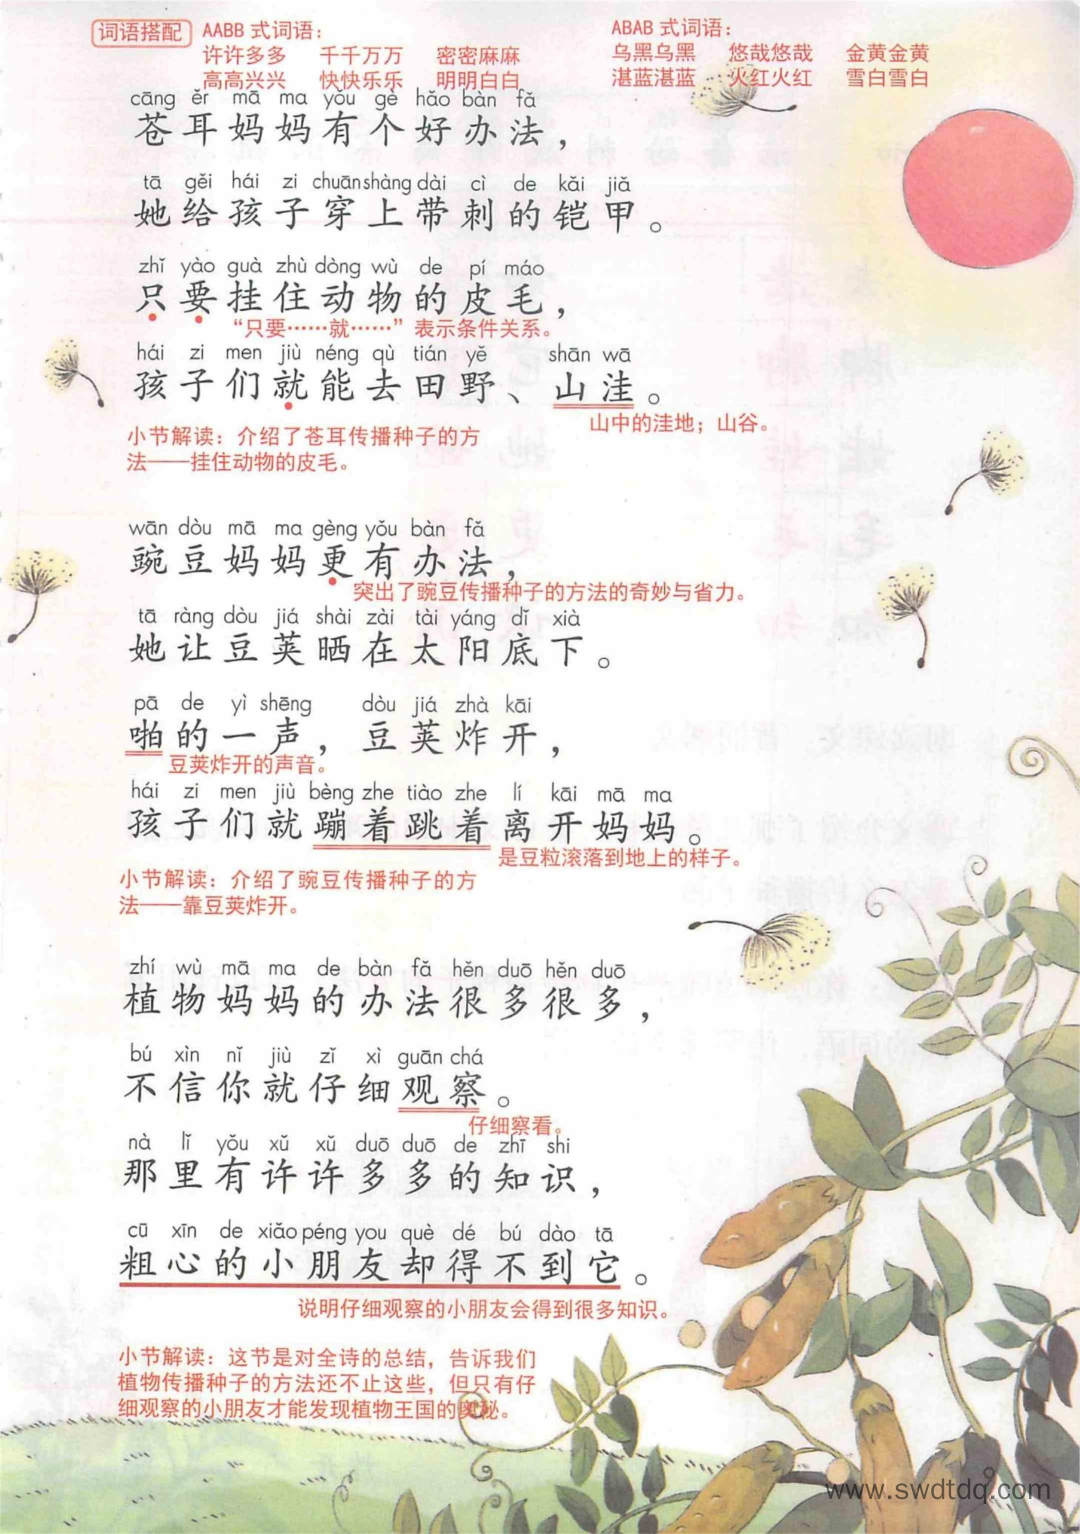 词语搭配 AABB 式词语： ABAB 式词语：
许许多多 千千万万 密密麻麻 乌黑乌黑 悠哉悠哉 金黄金黄
高高兴兴 快快乐乐 明明白白 湛蓝湛蓝 火红火红 雪白雪白
cāng ěr mā ma yǒu gè hǎo bàn fǎ
苍耳妈妈有个好办法，
tā gěi hái zi chuān shàng dài cì de kǎi jiǎ
她给孩子穿上带刺的铠甲。
zhǐ yào guà zhù dòng wù de pí máo
只要挂住动物的皮毛，
“只要……就……”表示条件关系。
hái zi men jiù néng qù tián yě shān wā
孩子们就能去田野、山洼。
山中的洼地；山谷。
小节解读：介绍了苍耳传播种子的方
法——挂住动物的皮毛。
wān dòu mā ma gèng yǒu bàn fǎ
豌豆妈妈更有办法，
突出了豌豆传播种子的方法的奇妙与省力。
tā ràng dòu jiá shài zài tài yáng dǐ xià
她让豆荚晒在太阳底下。
pā de yì shēng dòu jiá zhà kāi
啪的一声，豆荚炸开，
豆荚炸开的声音。
hái zi men jiù bèng zhe tiào zhe lí kāi mā ma
孩子们就蹦着跳着离开妈妈。
是豆粒滚落到地上的样子。
小节解读：介绍了豌豆传播种子的方
法——靠豆荚炸开。
zhí wù mā ma de bàn fǎ hěn duō hěn duō
植物妈妈的办法很多很多，
bú xìn nǐ jiù zǐ xì guān chá
不信你就仔细观察。
仔细察看。
nà lǐ yǒu xǔ xǔ duō duō de zhī shi
那里有许许多多的知识，
cū xīn de xiǎo péng you què dé bú dào tā
粗心的小朋友却得不到它。
说明仔细观察的小朋友会得到很多知识。
小节解读：这节是对全诗的总结，告诉我们
植物传播种子的方法还不止这些，但只有仔
细观察的小朋友才能发现植物王国的奥秘。
www.swdtdq.com